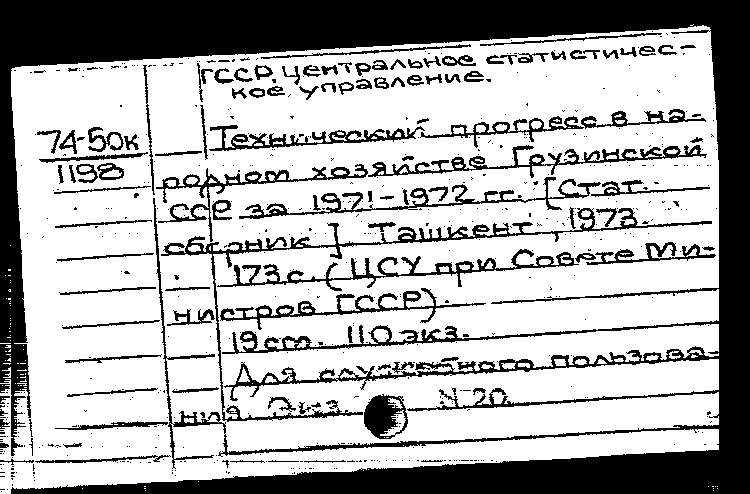 ГССР. Центральное статистичес-
кое управление.
74-50к
1198
Технический прогресс в на-
родном хозяйстве Грузинской
ССР за 1971-1972 гг. [Стат.
сборник]. Ташкент, 1973.
173 с. (ЦСУ при Совете Ми-
нистров ГССР).
19 см. 110 экз.
Для служебного пользова-
ния. Экз. N 20.